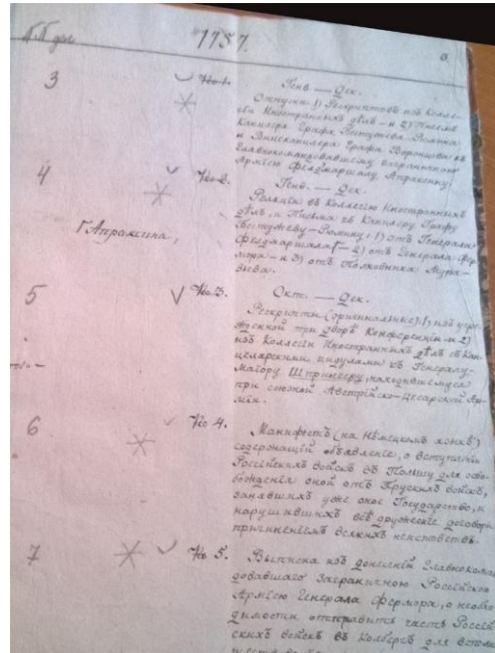 №№ дѣл 1757.
3 № 1. Генв. — Дек.
Отпуски: 1) Рескриптовъ изъ Колле-
гіи Иностранныхъ дѣлъ — и 2) Писемъ
Канцлера Графа Бестужева-Рюмина
и Вицеканцлера Графа Воронцова къ
Главнокомандовавшему заграничною
Арміею Фельдмаршалу Апраксину.
4 № 2. Генв. — Дек.
Реляціи въ Коллегію Иностранныхъ
дѣлъ, и Письма къ Канцлеру Графу
Бестужеву-Рюмину: 1) отъ Генералъ
Г Апраксина, Фельдмаршала Г — 2) отъ Генерала Фер-
мора — и 3) отъ Полковника
5 № 3. Окт. — Дек.
Рескрипты (оригинальные): 1) изъ учре-
жденной при дворѣ Конференціи — и 2)
изъ Коллегіи Иностранныхъ дѣлъ съ Кан-
целярскими къ Генералу-
Маіору Шпрингеру, находившемуся
при союзной Австрійско-Цесарской Ар-
міи.
6 № 4. Манифестъ (на Нѣмецкомъ языкѣ)
содержащій объявленіе, о вступленіи
Россійскихъ войскъ въ Польшу для осво-
божденія оной отъ Прускихъ войскъ,
занявшихъ уже оное Государство, и
нарушившихъ всѣ дружескіе договоры
причиненіемъ всякихъ неистовствъ.
7 № 5. Выписка изъ донесеній Главнокоман-
довавшаго Заграничною Россійскою
Арміею Генерала Фермора, о необхо-
димости отправить часть Россій-
скихъ войскъ въ Колбергъ для